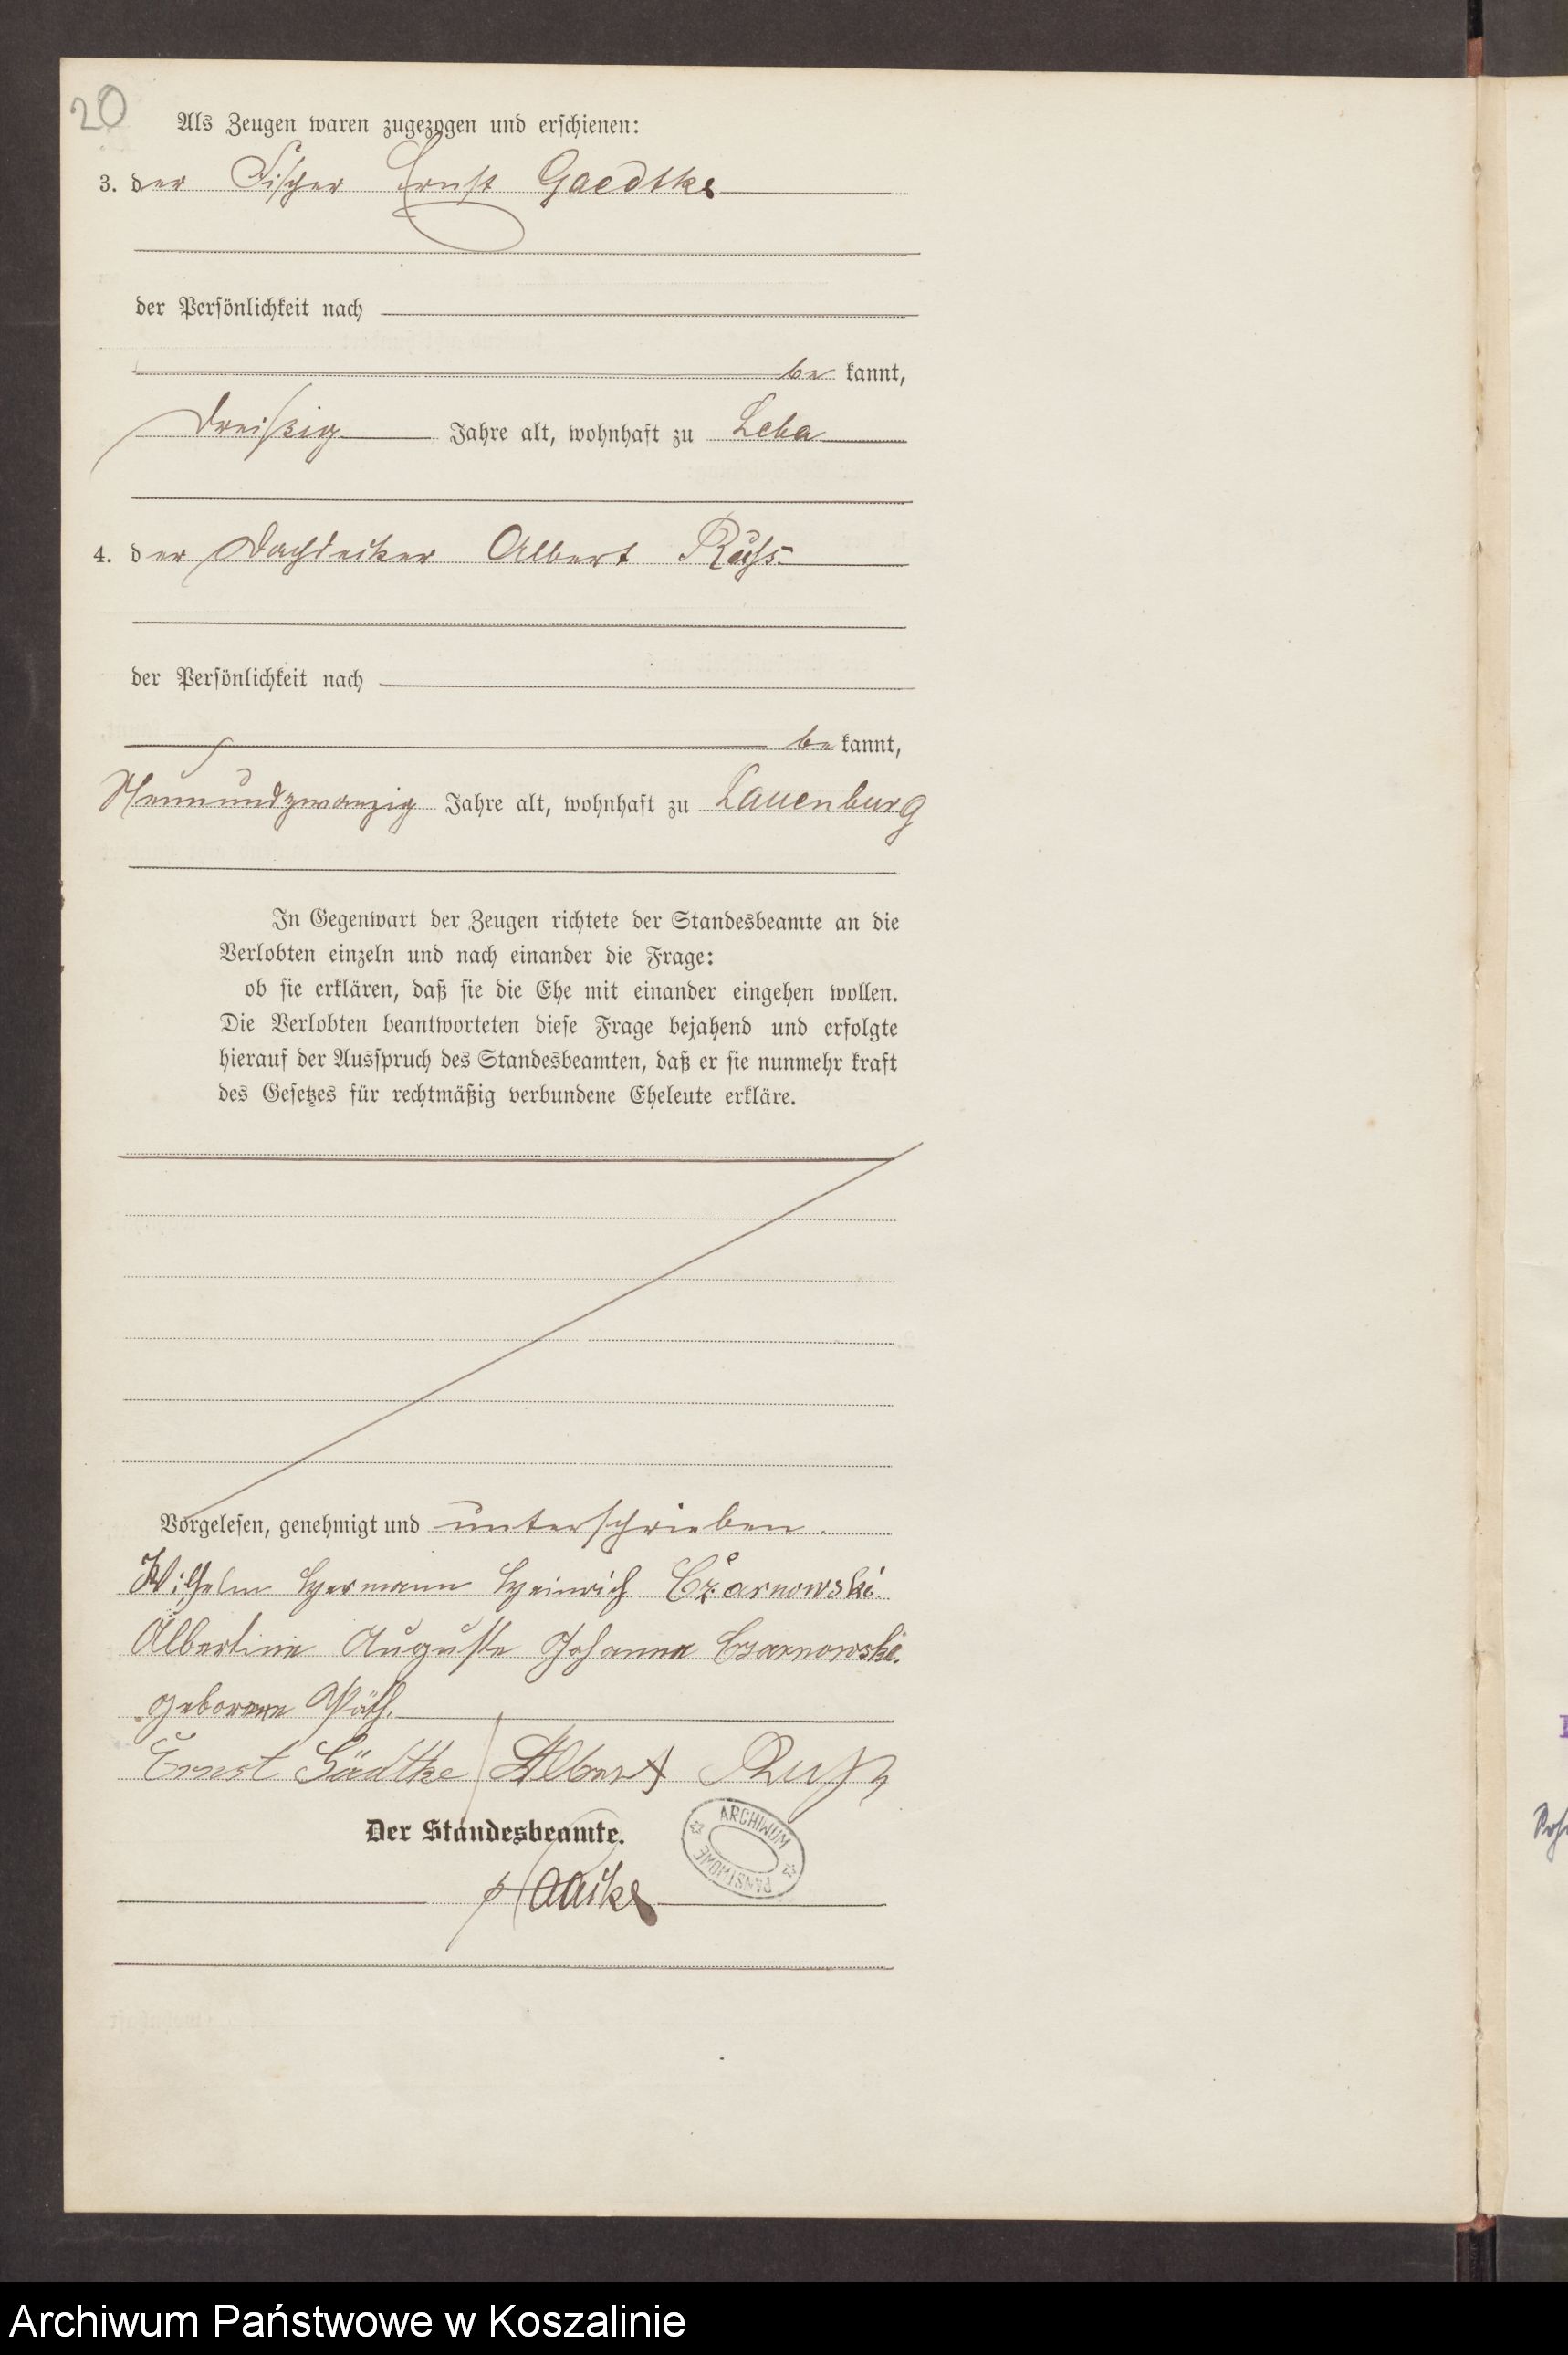 20
Als Zeugen waren zugezogen und erschienen:
3. der Fischer Ernst Gaedtke
der Persönlichkeit nach
be kannt,
dreißig Jahre alt, wohnhaft zu Leba
4. der Dachdecker Albert Ruhs
der Persönlichkeit nach
be kannt,
Neunundzwanzig Jahre alt, wohnhaft zu Lauenburg
In Gegenwart der Zeugen richtete der Standesbeamte an die
Verlobten einzeln und nach einander die Frage:
ob sie erklären, daß sie die Ehe mit einander eingehen wollen.
Die Verlobten beantworteten diese Frage bejahend und erfolgte
hierauf der Ausspruch des Standesbeamten, daß er sie nunmehr kraft
des Gesetzes für rechtmäßig verbundene Eheleute erkläre.
Vorgelesen, genehmigt und unterschrieben.
Wilhelm Hermann Heinrich Czarnowski.
Albertine Auguste Johanna Czarnowski.
geborene
Ernst Gädtke Albert
Der Standesbeamte.
ARCHIWUM PAŃSTWOWE
Archiwum Państwowe w Koszalinie